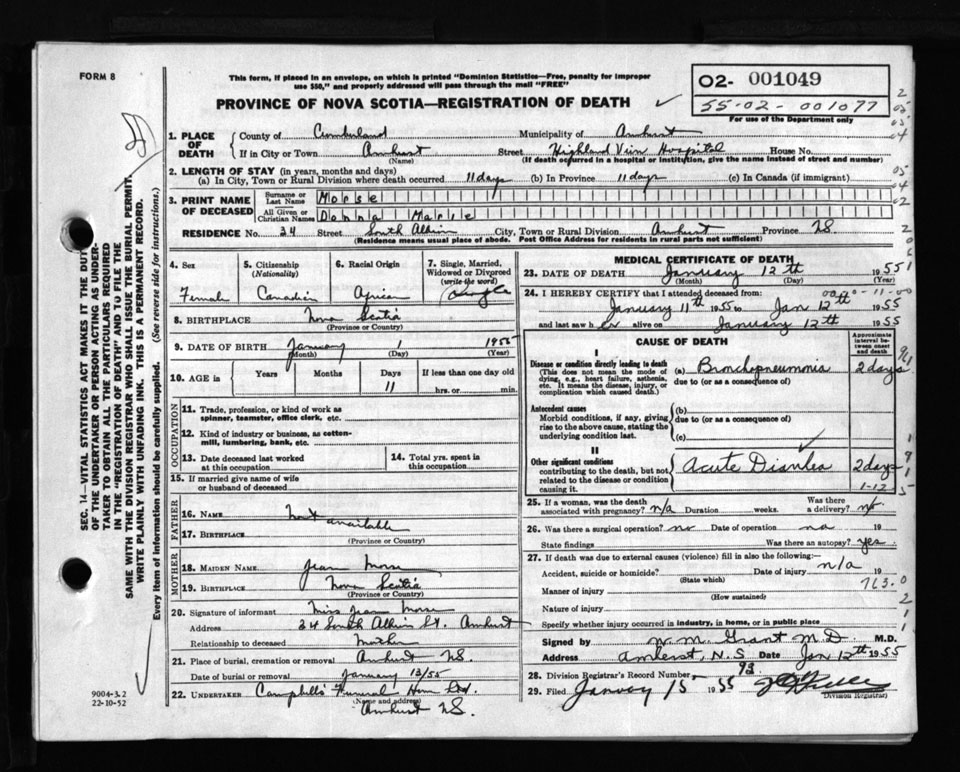 FORM 8
This form, if placed in an envelope, on which is printed "Dominion Statistics—Free, penalty for improper
use $50," and properly addressed will pass through the mail "FREE"
O2- 001049
55-02-001077
For use of the Department only
PROVINCE OF NOVA SCOTIA—REGISTRATION OF DEATH
1. PLACE OF DEATH County of Cumberland Municipality of Amherst
If in City or Town Amherst Street Highland View Hospital House No.
(Name) (If death occurred in a hospital or institution, give the name instead of street and number)
2. LENGTH OF STAY (in years, months and days)
(a) In City, Town or Rural Division where death occurred 11 days (b) In Province 11 days (c) In Canada (if immigrant)
3. PRINT NAME OF DECEASED Surname or Last Name Morse
All Given or Christian Names Donna Marie
RESIDENCE No. 34 Street South Albion City, Town or Rural Division Amherst Province NS
(Residence means usual place of abode. Post Office Address for residents in rural parts not sufficient)
4. Sex 5. Citizenship (Nationality) 6. Racial Origin 7. Single, Married, Widowed or Divorced (write the word)
Female Canadian African Single
8. BIRTHPLACE Nova Scotia
(Province or Country)
9. DATE OF BIRTH January 1 1955
(Month) (Day) (Year)
10. AGE in Years Months Days If less than one day old
11 hrs. or min.
OCCUPATION
11. Trade, profession, or kind of work as spinner, teamster, office clerk, etc.
12. Kind of industry or business, as cotton-mill, lumbering, bank, etc.
13. Date deceased last worked at this occupation 14. Total yrs. spent in this occupation
15. If married give name of wife or husband of deceased
FATHER
16. Name Not available
17. Birthplace
(Province or Country)
MOTHER
18. MAIDEN NAME Jean Morse
19. BIRTHPLACE Nova Scotia
(Province or Country)
20. Signature of informant Miss Jean Morse
Address 34 South Albion St. Amherst
Relationship to deceased Mother
21. Place of burial, cremation or removal Amherst NS.
Date of burial or removal January 13/55
22. UNDERTAKER Campbells Funeral Home Ltd.
(Name and address)
Amherst NS.
MEDICAL CERTIFICATE OF DEATH
23. DATE OF DEATH January 12th 1955
(Month) (Day) (Year)
24. I HEREBY CERTIFY that I attended deceased from:
January 11th 1955 to Jan 12th 1955
and last saw her alive on January 12th 1955
CAUSE OF DEATH
Approximate interval between onset and death
I
Disease or condition directly leading to death (a) Bronchopneumonia 2 days
(This does not mean the mode of dying, e.g., heart failure, asthenia, etc. It means the disease, injury, or complication which caused death.) due to (or as a consequence of)
Antecedent causes (b)
Morbid conditions, if any, giving rise to the above cause, stating the underlying condition last. due to (or as a consequence of)
(c)
II
Other significant conditions contributing to the death, but not related to the disease or condition causing it. Acute Diarrhea 2 days
1-12
25. If a woman, was the death associated with pregnancy? n/a Duration weeks. Was there a delivery? no
26. Was there a surgical operation? no Date of operation na 19
State findings Was there an autopsy? yes
27. If death was due to external causes (violence) fill in also the following:—
Accident, suicide or homicide? Date of injury n/a 19
(State which)
Manner of injury 763.0
(How sustained)
Nature of injury
Specify whether injury occurred in industry, in home, or in public place
Signed by N. M. Grant M.D. M.D.
Address Amherst, N.S. Date Jan 12th 1955
28. Division Registrar's Record Number 93
29. Filed January 15 1955
(Division Registrar)
SEC. 14—VITAL STATISTICS ACT MAKES IT THE DUTY
OF THE UNDERTAKER OR PERSON ACTING AS UNDERTAKER
TO OBTAIN ALL THE PARTICULARS REQUIRED
IN THE "REGISTRATION OF DEATH" AND TO FILE THE
SAME WITH THE DIVISION REGISTRAR WHO SHALL ISSUE THE BURIAL PERMIT.
WRITE PLAINLY WITH UNFADING INK. THIS IS A PERMANENT RECORD.
Every item of information should be carefully supplied. (See reverse side for instructions.)
9004-3.2
22-10-52